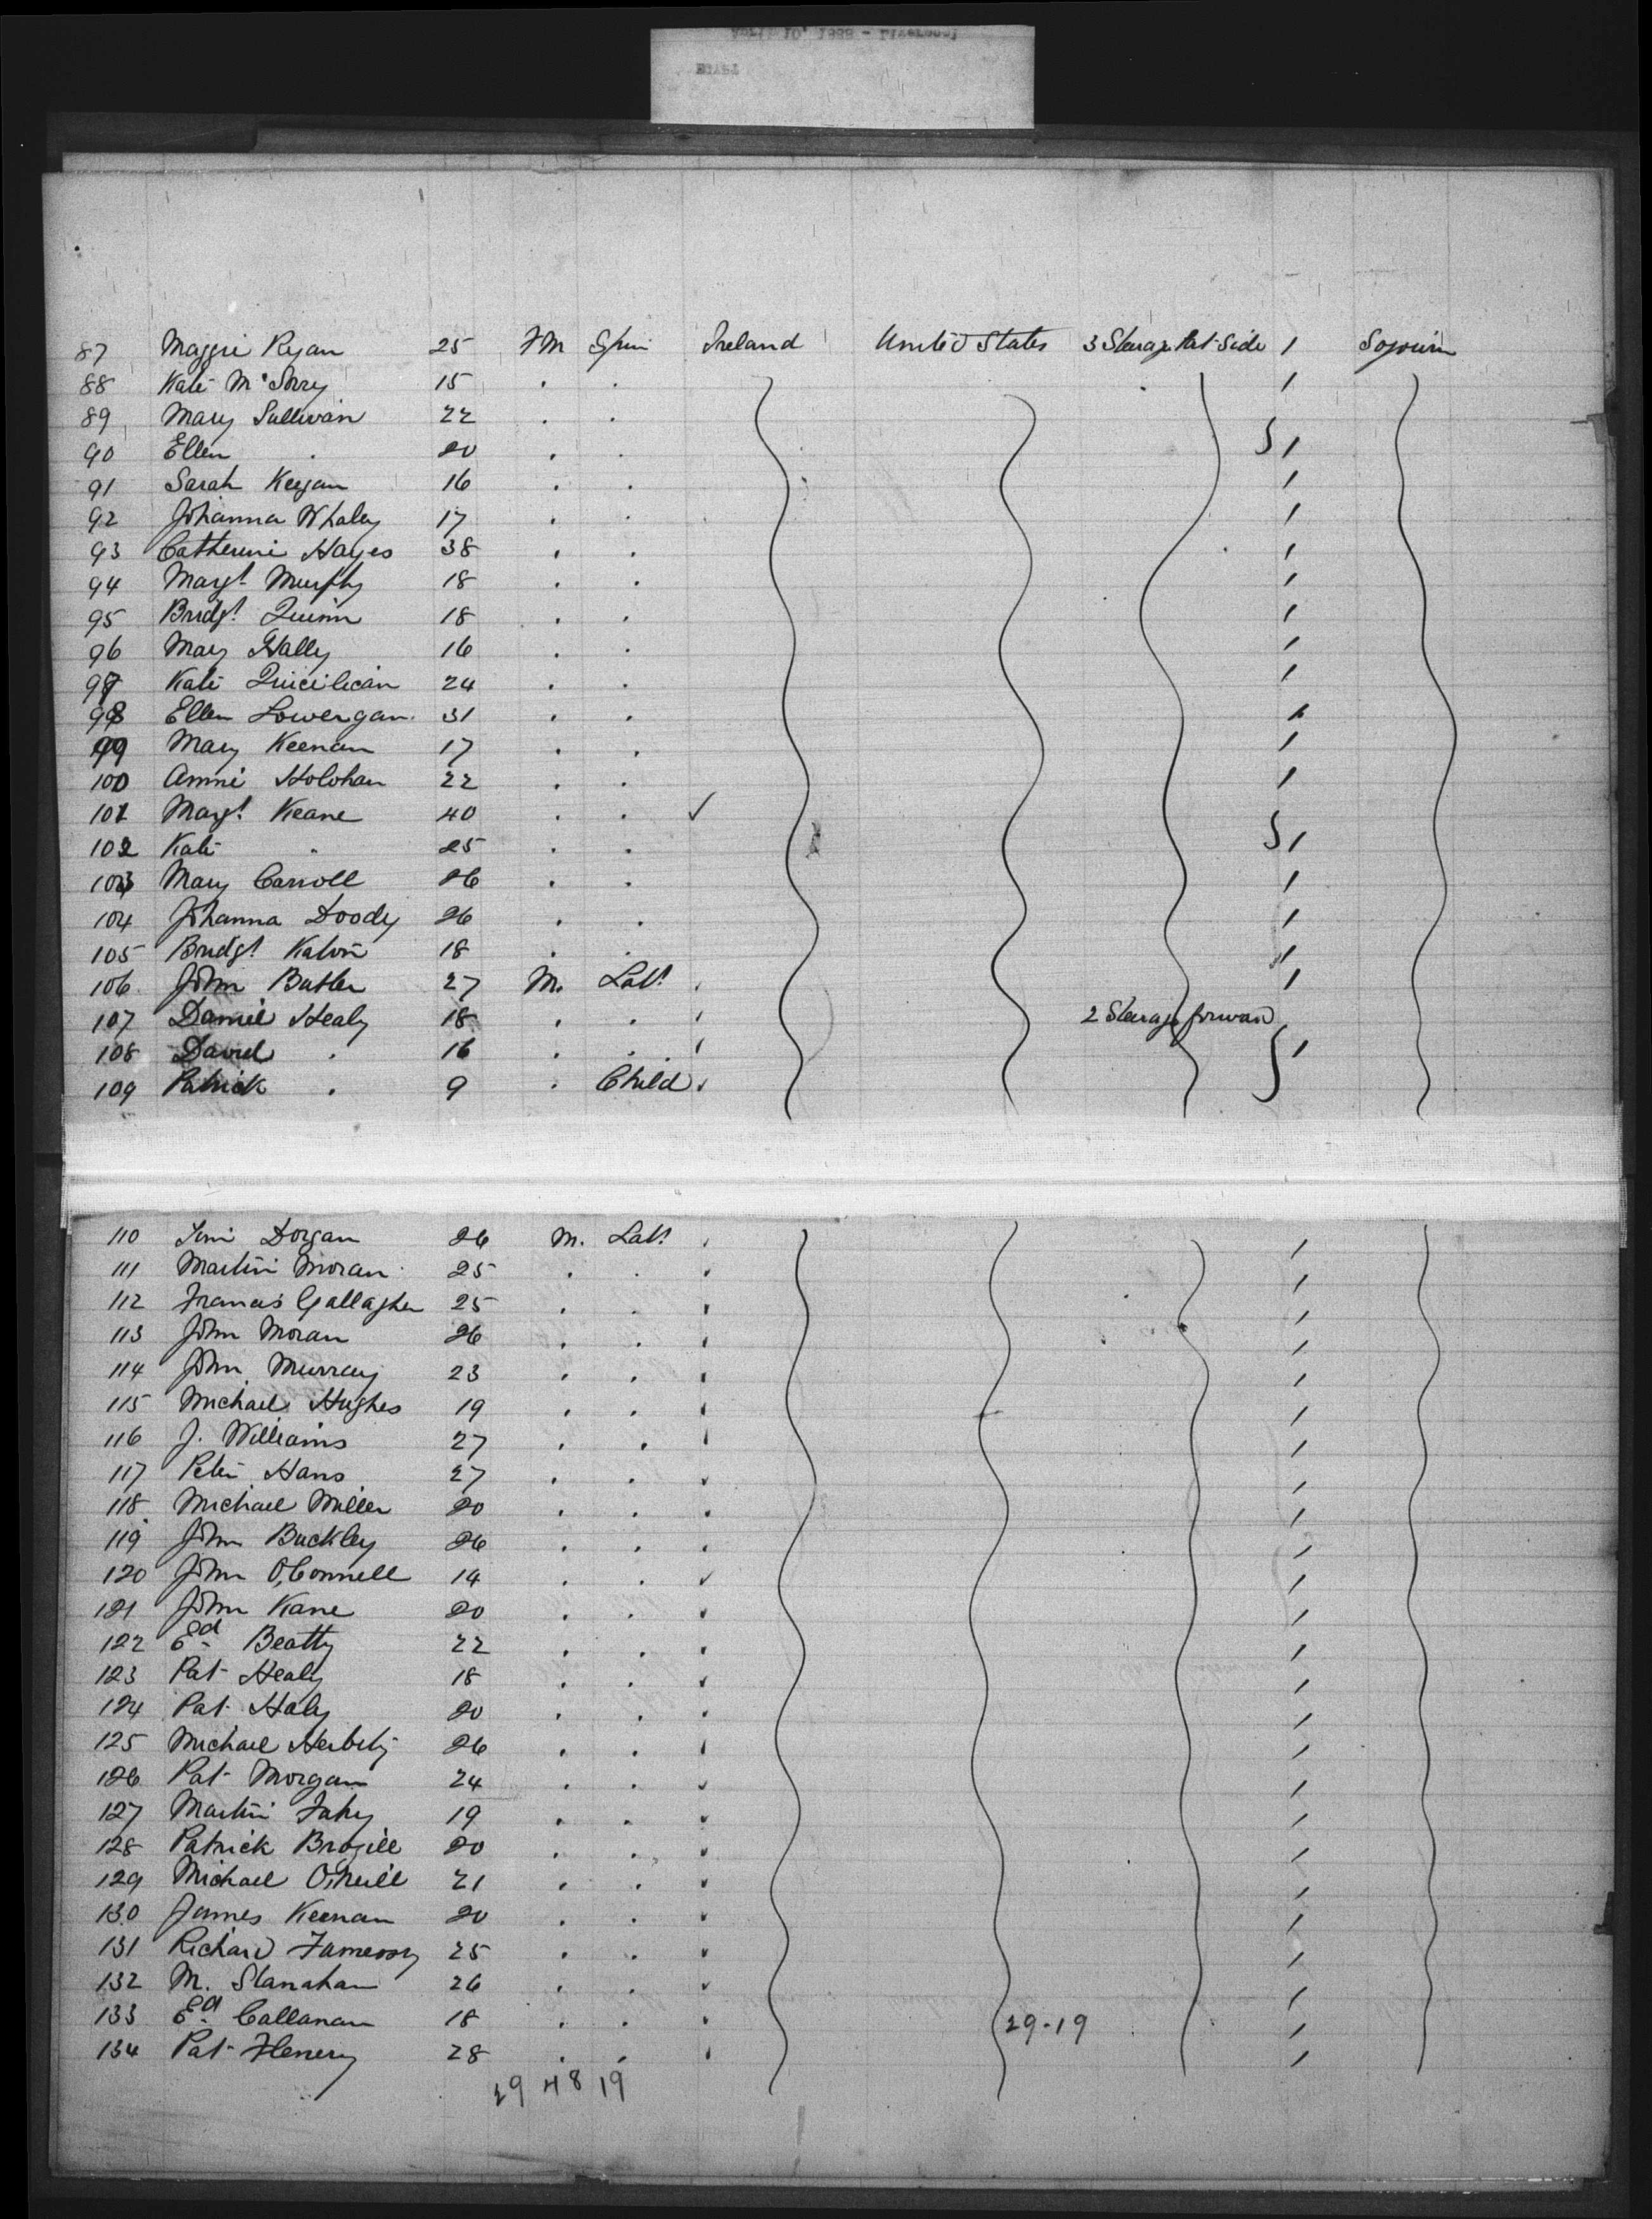 April 10, 1888 - Liverpool
EGYPT
87 Maggie Ryan 25 FM Spin Ireland United States 3 Steerage Aft Side 1 Sojourn
88 Kate McSorry 15 . . 1
89 Mary Sullivan 22 . .
90 Ellen . 20 . . } 1
91 Sarah Keegan 16 . . 1
92 Johanna Whaley 17 . . 1
93 Catherine Hayes 38 . . 1
94 Margt. Murphy 18 . . 1
95 Bridgt. Quinn 18 . . 1
96 Mary Hally 16 . . 1
97 Kate 24 . . 1
98 Ellen Lowergan 31 . . 1
99 Mary Keenan 17 . . 1
100 Annie Holohan 22 . . 1
101 Margt. Keane 40 . . ✓
102 Kate " 25 . . } 1
103 Mary Carroll 26 . . 1
104 Johanna Doody 26 . . 1
105 Bridgt. 18 . . 1
106 John Butler 27 M. Labr. 1
107 Daniel Healy 18 . . 2 Steerage forward
108 David . 16 . . } 1
109 Patrick . 9 . Child
110 Jim Dorgan 26 M. Labr. 1
111 Martin Moran 25 . . 1
112 Francis Gallagher 25 . . 1
113 John Moran 26 . . 1
114 John Murray 23 . . 1
115 Michael Hughes 19 . . 1
116 J. Williams 27 . . 1
117 Peter Hans 27 . . 1
118 Michael Miller 20 . . 1
119 John Buckley 26 . . 1
120 John O'Connell 14 . . ✓ 1
121 John Kane 20 . . 1
122 Ed. Beatty 22 . . 1
123 Pat Healy 18 . . 1
124 Pat Haly 20 . . 1
125 Michael 26 . . 1
126 Pat Morgan 24 . . 1
127 Martin Fahy 19 . . 1
128 Patrick 20 . . 1
129 Michael O'Neill 21 . . 1
130 James Keenan 20 . . 1
131 Richard 25 . . 1
132 M. Slanahan 26 . . 1
133 Ed. Callanan 18 . . 29-19 1
134 Pat Henery 28 . . 1
29 48 19